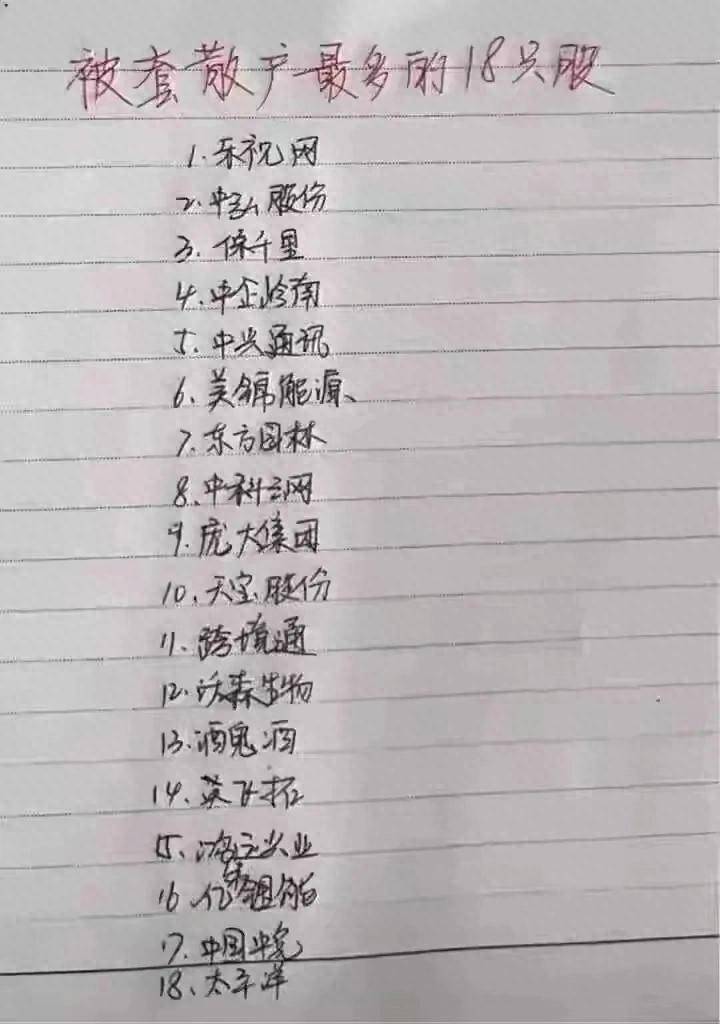 被套散户最多的18只股
1.乐视网
2.中弘股份
3.保千里
4.中金岭南
5.中兴通讯
6.美锦能源、
7.东方园林
8.中科云网
9.庞大集团
10.天宝股份
11.跨境通
12.沃森生物
13.酒鬼酒
14.英飞拓
15、实业
16
17.中国中免
18、太平洋